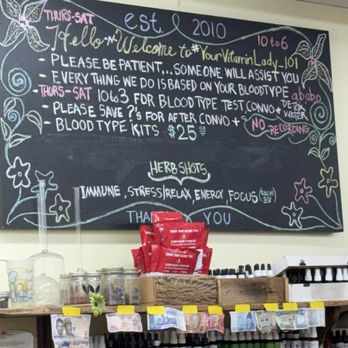 THURS-SAT est. 2010
10 to 6
Hello ~ Welcome to #YourVitaminLady_101
- PLEASE BE PATIENT... SOMEONE WILL ASSIST YOU
- EVERYTHING WE DO IS BASED ON YOUR BLOODTYPE
a b ab o
THURS-SAT 10 to 3 FOR BLOOD TYPE TEST CONVO + DETOX WATER
- PLEASE SAVE ?'s FOR AFTER CONVO +
NO RECORDING
- BLOOD TYPE KITS $25.00
HERB SHOTS
IMMUNE, STRESS/RELAX, ENERGY, FOCUS
THANK YOU
KNOW YOUR BLOOD TYPE